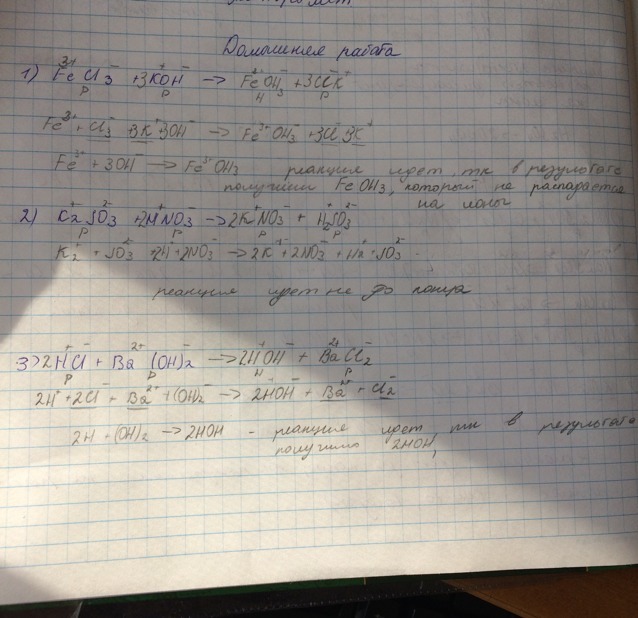 Домашняя работа
1) Fe³⁺Cl₃⁻ + 3K⁺OH⁻ → Fe⁺OH₃⁻ + 3Cl⁻K⁺
р р н р
Fe³⁺ + Cl₃⁻ 3K⁺ 3OH⁻ → Fe³⁺OH₃⁻ + 3Cl⁻ 3K⁺
Fe³⁺ + 3OH⁻ → Fe³⁺OH₃ реакция идет, тк в результате
получили FeOH₃, который не распадается
на ионы
2) K₂⁺SO₃²⁻ + 2H⁺NO₃⁻ → 2K⁺NO₃⁻ + H₂⁺SO₃²⁻
р р р р
K₂⁺ + SO₃²⁻ + 2H⁺ + 2NO₃⁻ → 2K⁺ + 2NO₃⁻ + H₂⁺ + SO₃²⁻
реакция идет не до конца
3) 2H⁺Cl⁻ + Ba²⁺(OH)₂⁻ → 2H⁺OH⁻ + Ba²⁺Cl₂⁻
р р н р
2H⁺ + 2Cl⁻ + Ba²⁺ + (OH)₂⁻ → 2H⁺OH⁻ + Ba²⁺ + Cl₂⁻
2H + (OH)₂ → 2HOH - реакция идет, тк в результате
получили 2HOH